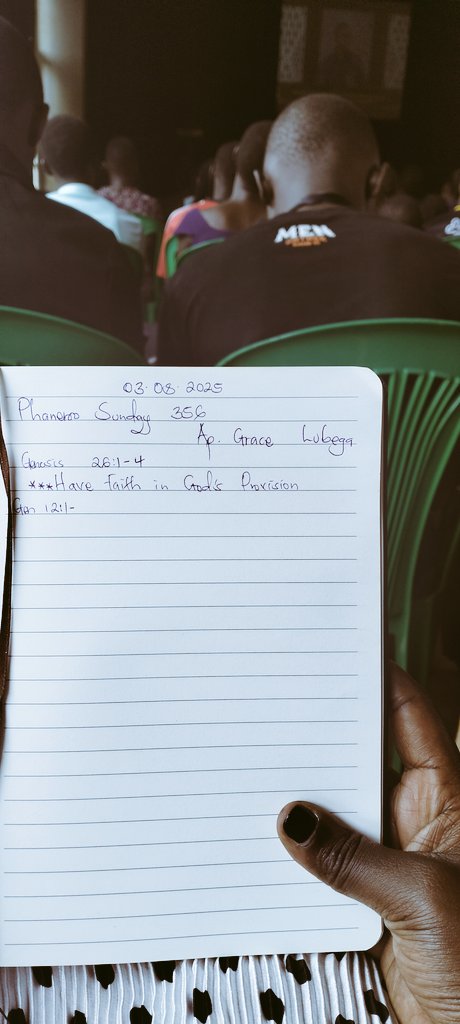 MEN
03.08.2025
Phaneroo Sunday 356
Ap. Grace Lubega
Genesis 26:1-4
***Have faith in God's Provision
Gen 12:1-